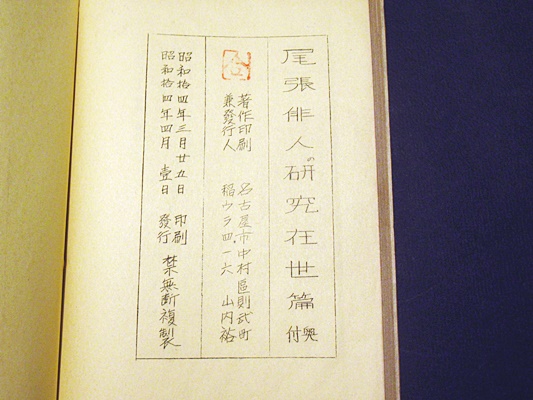 尾張俳人の研究在世篇奥付
著作印刷
兼發行人
名古屋市中村區則武町
稲ウラ四ノ一六 山内裕
昭和拾四年三月廿五日 印刷
昭和拾四年四月壹日 發行
禁無断複製